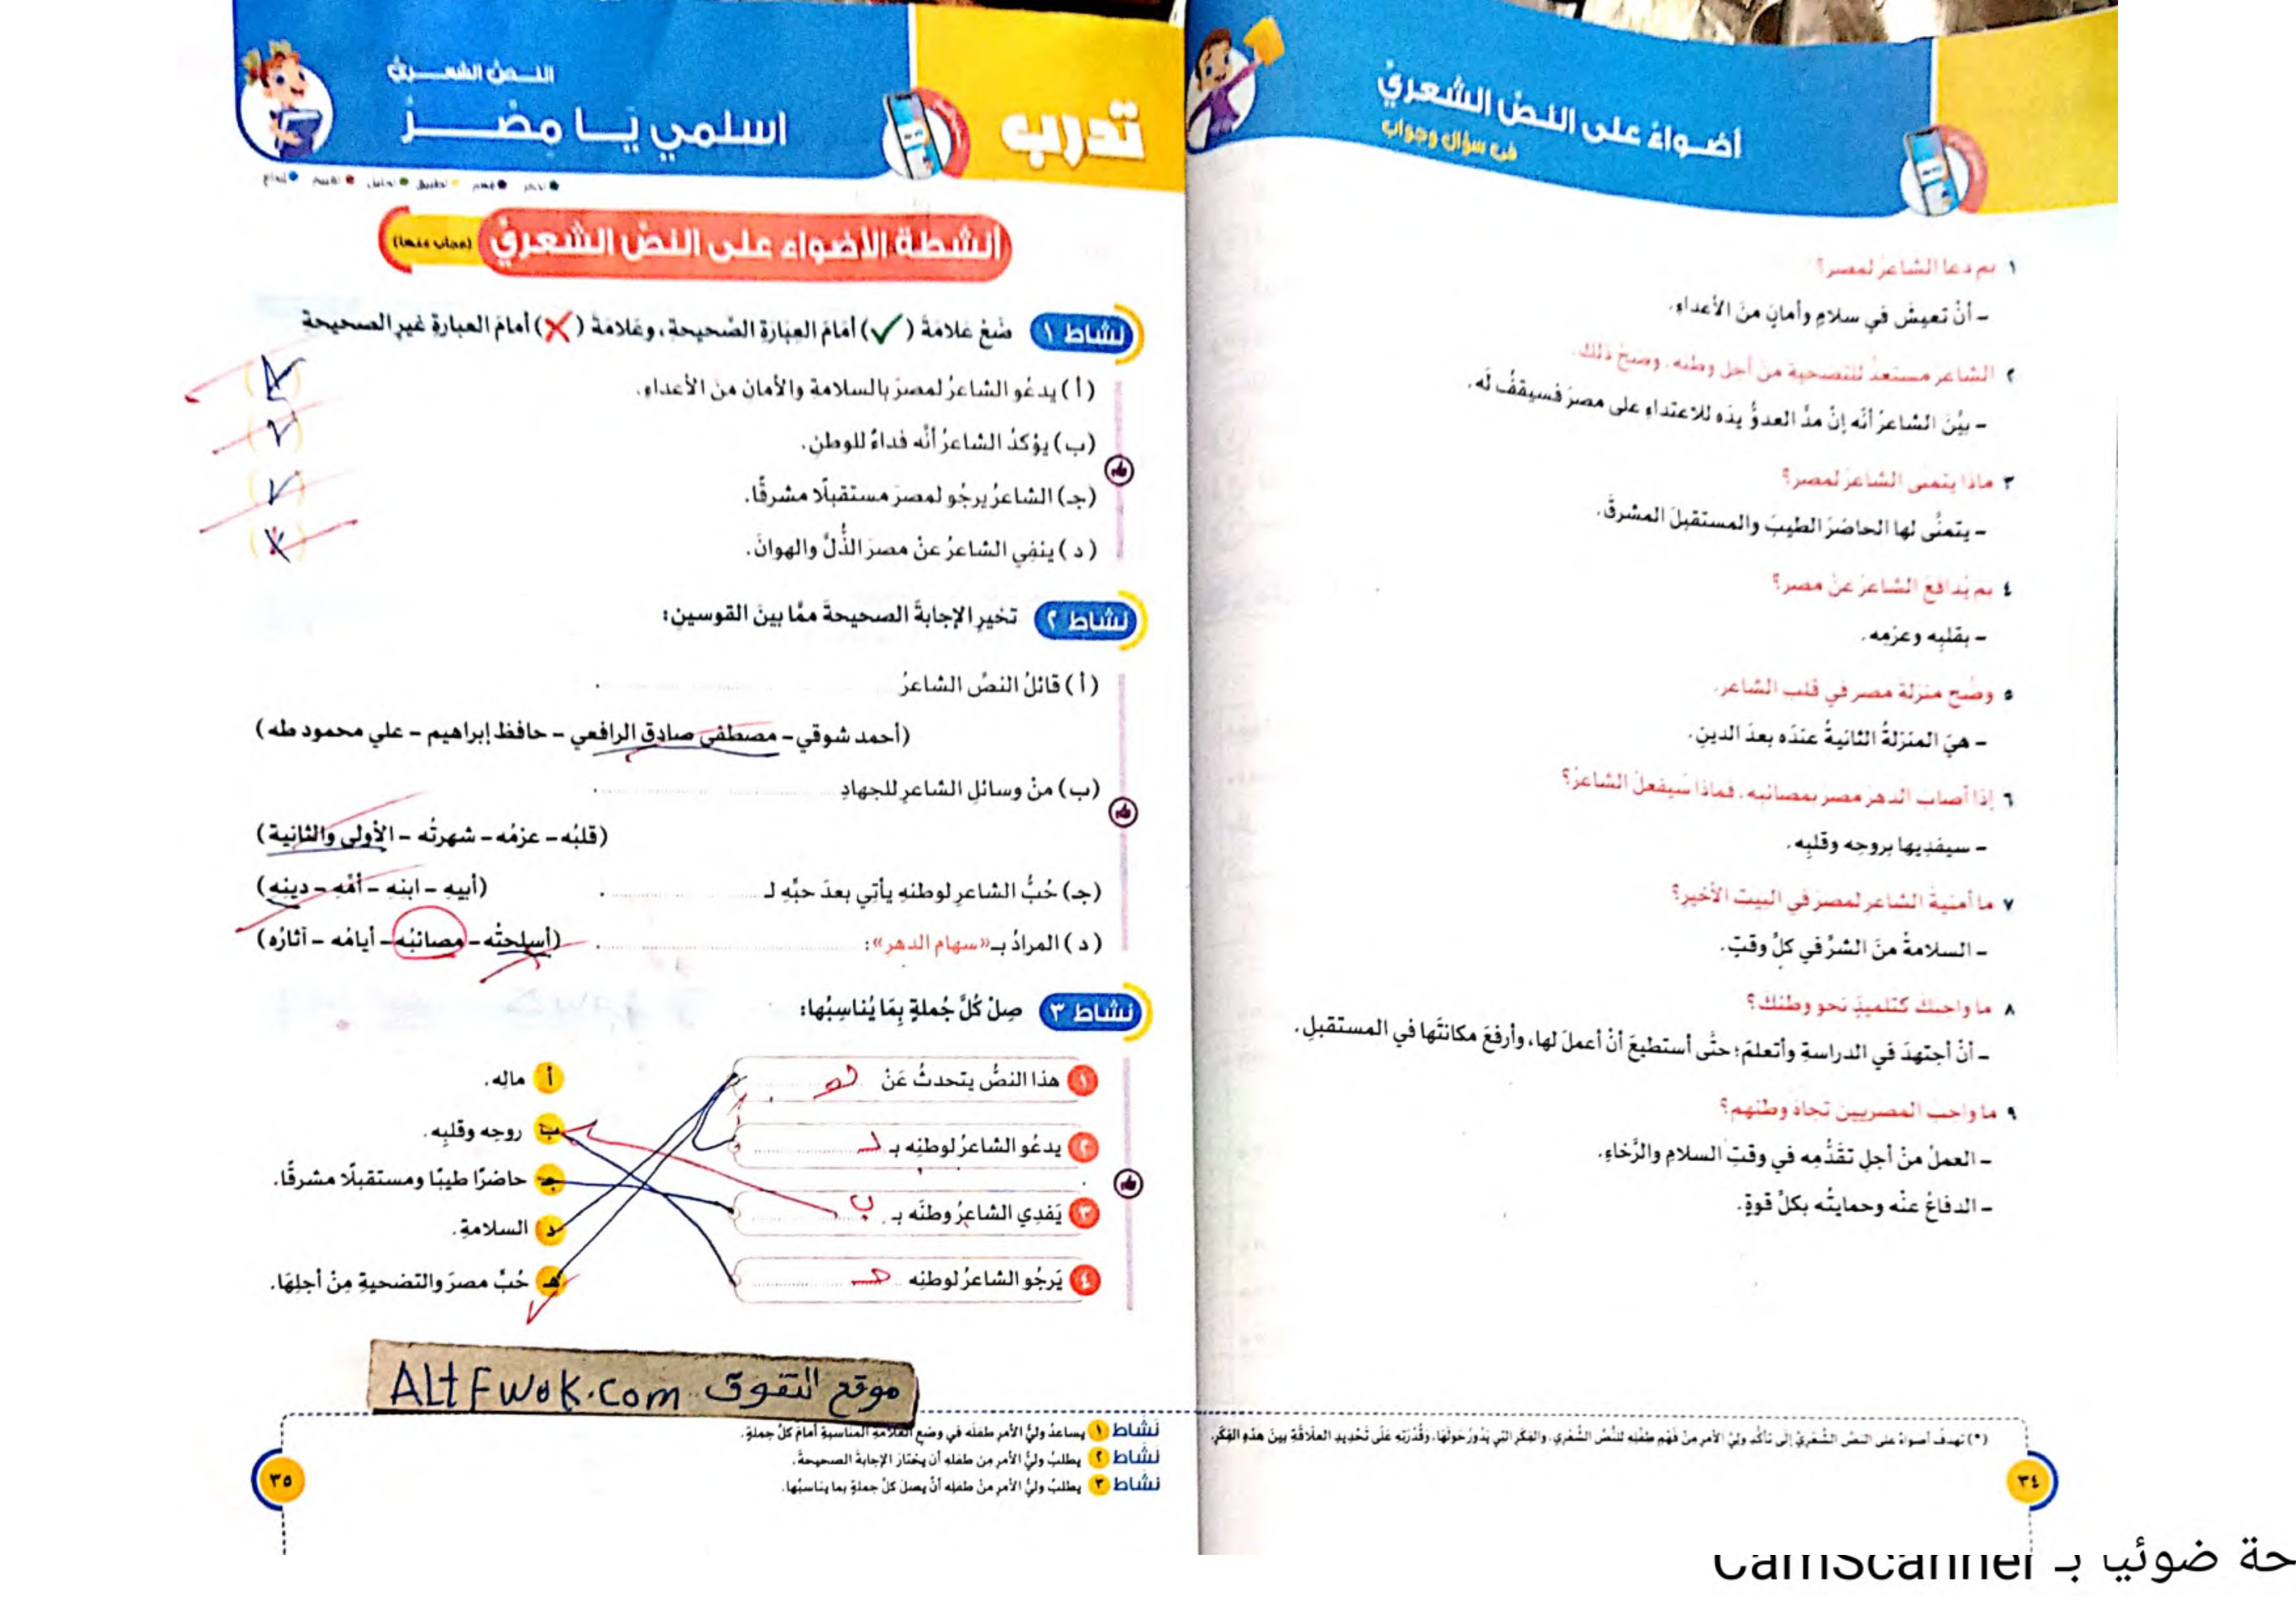 أضواء على النص الشعري
في سؤال وجواب
١ بم دعا الشاعر لمصر؟
- أنْ تعيشَ في سلامٍ وأمانٍ منَ الأعداءِ.
٢ الشاعر مستعدٌّ للتضحية من أجل وطنه. وضح ذلك.
- بيَّن الشاعرُ أنَّه إنْ مدَّ العدوُّ يدَه للاعتداءِ على مصرَ فسيقفُ لَه.
٣ ماذا يتمنى الشاعر لمصر؟
- يتمنَّى لها الحاضرَ الطيبَ والمستقبلَ المشرقَ.
٤ بم يدافع الشاعر عن مصر؟
- بقلبِه وعزمِه.
٥ وضح منزلة مصر في قلب الشاعر.
- هيَ المنزلةُ الثانيةُ عندَه بعدَ الدينِ.
٦ إذا أصاب الدهر مصر بمصائبه. فماذا سيفعل الشاعر؟
- سيفديها بروحِه وقلبِه.
٧ ما أمنية الشاعر لمصر في البيت الأخير؟
- السلامةُ منَ الشرِّ في كلِّ وقتٍ.
٨ ما واجبك كتلميذٍ نحو وطنك؟
- أنْ أجتهدَ في الدراسةِ وأتعلمَ؛ حتَّى أستطيعَ أنْ أعملَ لها، وأرفعَ مكانتَها في المستقبلِ.
٩ ما واجب المصريين تجاه وطنهم؟
- العملُ منْ أجلِ تقدُّمِه في وقتِ السلامِ والرَّخاءِ.
- الدفاعُ عنْه وحمايتُه بكلِّ قوةٍ.
(*) تهدف أضواء على النص الشعري إلى تأكد ولي الأمر من فهم طفله للنص الشعري، والفكر التي يدور حولها، وقدرته على تحديد العلاقة بين هذه الفكر.
٣٤
تدرب
النــص الشعــري
اسلمي يَــا مِصْــــرُ
تذكر فهم تطبيق تحليل تقييم إبداع
أنشطة الأضواء على النص الشعري (مجاب عنها)
نشاط ١ ضَعْ عَلامَةَ (✓) أمَامَ العِبَارَةِ الصَّحيحةِ، وعَلامَةَ (✗) أمامَ العبارةِ غيرِ الصحيحةِ
(أ) يدعُو الشاعرُ لمصرَ بالسلامةِ والأمانِ منَ الأعداءِ.
(ب) يؤكدُ الشاعرُ أنَّه فداءٌ للوطنِ. (✓)
(جـ) الشاعرُ يرجُو لمصرَ مستقبلًا مشرقًا. (✓)
(د) ينفِي الشاعرُ عنْ مصرَ الذُّلَّ والهوانَ.
نشاط ٢ تخيرِ الإجابةَ الصحيحةَ ممَّا بينَ القوسينِ:
(أ) قائلُ النصِّ الشاعرُ ............
(أحمد شوقي - مصطفى صادق الرافعي - حافظ إبراهيم - علي محمود طه)
(ب) منْ وسائلِ الشاعرِ للجهادِ ............
(قلبُه - عزمُه - شهرتُه - الأولى والثانية)
(جـ) حُبُّ الشاعرِ لوطنهِ يأتي بعدَ حبِّهِ لـ ............ (أبيهِ - ابنهِ - أمِّه - دينِه)
(د) المرادُ بـ«سهام الدهر»: ............ (أسلحتُه - مصائبُه - أيامُه - آثارُه)
نشاط ٣ صِلْ كُلَّ جُملةٍ بِمَا يُناسِبُها:
١ هذا النصُّ يتحدثُ عَنْ هـ أ مالِه.
٢ يدعُو الشاعرُ لوطنِه بـ د ب روحِه وقلبِه.
٣ يَفدِي الشاعرُ وطنَه بـ ب جـ حاضرًا طيبًا ومستقبلًا مشرقًا.
٤ يَرجُو الشاعرُ لوطنِه جـ د السلامةِ.
هـ حُبِّ مصرَ والتضحيةِ مِنْ أجلِهَا.
موقع التفوق ALtFwok.com
نشاط ١ يساعدُ وليُّ الأمرِ طفلَه في وضعِ العلامةِ المناسبةِ أمامَ كلِّ جملةٍ.
نشاط ٢ يطلبُ وليُّ الأمرِ مِن طفلهِ أن يختارَ الإجابةَ الصحيحةَ.
نشاط ٣ يطلبُ وليُّ الأمرِ منْ طفلِه أنْ يصلَ كلَّ جملةٍ بما يناسبُها.
٣٥
حة ضوئيا بـ CamScanner